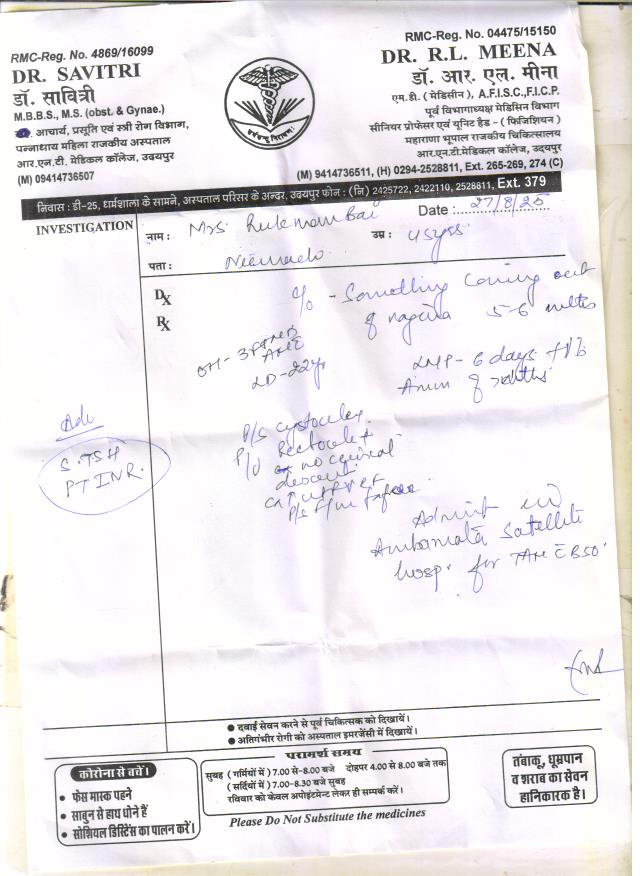 RMC-Reg. No. 4869/16099
DR. SAVITRI
डॉ. सावित्री
M.B.B.S., M.S. (obst. & Gynae.)
आचार्य, प्रसूति एवं स्त्री रोग विभाग,
पन्नाधाय महिला राजकीय अस्पताल
आर.एन.टी. मेडिकल कॉलेज, उदयपुर
(M) 09414736507
RMC-Reg. No. 04475/15150
DR. R.L. MEENA
डॉ. आर. एल. मीना
एम.डी. ( मेडिसीन ), A.F.I.S.C.,F.I.C.P.
पूर्व विभागाध्यक्ष मेडिसिन विभाग
सीनियर प्रोफेसर एवं यूनिट हैड - ( फिजिशियन )
महाराणा भूपाल राजकीय चिकित्सालय
आर.एन.टी.मेडिकल कॉलेज, उदयपुर
(M) 9414736511, (H) 0294-2528811, Ext. 265-269, 274 (C)
निवास : डी-25, धर्मशाला के सामने, अस्पताल परिसर के अन्दर, उदयपुर फोन : (नि) 2425722, 2422110, 2528811, Ext. 379
INVESTIGATION
नाम : Mrs. Rukman Bai Date : 27/8/25
उम्र : 45yrs
पता :
Dx c/o - Something coming out
Rx of vagina 5-6 mths
LD-22yr
LMP - 6 days
Adv
S.TSH
PT INR.
P/S cystocele
P/V Rectocele +
no cervical
descent
Admit in
Ambamata Satellite
hosp. for TAH C BSO
● दवाई सेवन करने से पूर्व चिकित्सक को दिखायें।
● अतिगंभीर रोगी को अस्पताल इमरजेंसी में दिखायें।
कोरोना से बचें।
● फेस मास्क पहने
● साबुन से हाथ धोने हैं
● सोशियल डिस्टिेंस का पालन करें।
परामर्श समय
सुबह ( गर्मियों में ) 7.00 से-8.00 बजे दोहपर 4.00 से 8.00 बजे तक
( सर्दियों में ) 7.00-8.30 बजे सुबह
रविवार को केवल अपोइंटमेन्ट लेकर ही सम्पर्क करें।
Please Do Not Substitute the medicines
तंबाकू, धूम्रपान
व शराब का सेवन
हानिकारक है।